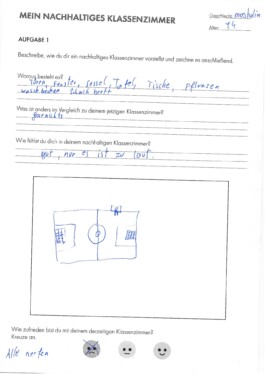 MEIN NACHHALTIGES KLASSENZIMMER
Geschlecht: männlich
Alter: 14
AUFGABE 1
Beschreibe, wie du dir ein nachhaltiges Klassenzimmer vorstellst und zeichne es anschließend.
Woraus besteht es?
Türen, fenster, sessel, Tafel, Tische, pflanzen
waschbecken
Was ist anders im Vergleich zu deinem jetzigen Klassenzimmer?
garnichts
Wie fühlst du dich in deinem nachhaltigen Klassenzimmer?
gut, nur es ist zu laut.
Wie zufrieden bist du mit deinem derzeitigen Klassenzimmer?
Kreuze an.
Alle nerfen